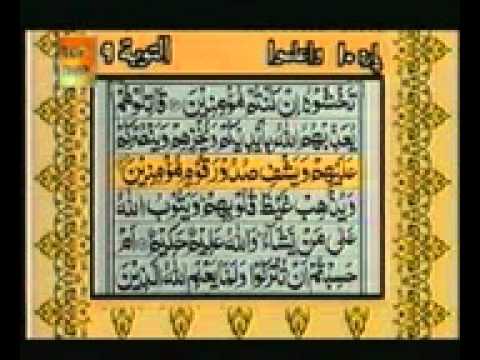 التوبة ٩ واعلموا پارہ ١٠
تَخْشَوْهُ اِنْ كُنْتُمْ مُّؤْمِنِيْنَ ۝ قَاتِلُوْهُمْ
يُعَذِّبْهُمُ اللّٰهُ بِاَيْدِيْكُمْ وَيُخْزِهِمْ وَيَنْصُرْكُمْ
عَلَيْهِمْ وَيَشْفِ صُدُوْرَ قَوْمٍ مُّؤْمِنِيْنَ ۝
وَيُذْهِبْ غَيْظَ قُلُوْبِهِمْ وَيَتُوْبُ اللّٰهُ
عَلٰى مَنْ يَّشَآءُ وَاللّٰهُ عَلِيْمٌ حَكِيْمٌ ۝ اَمْ
حَسِبْتُمْ اَنْ تُتْرَكُوْا وَلَمَّا يَعْلَمِ اللّٰهُ الَّذِيْنَ